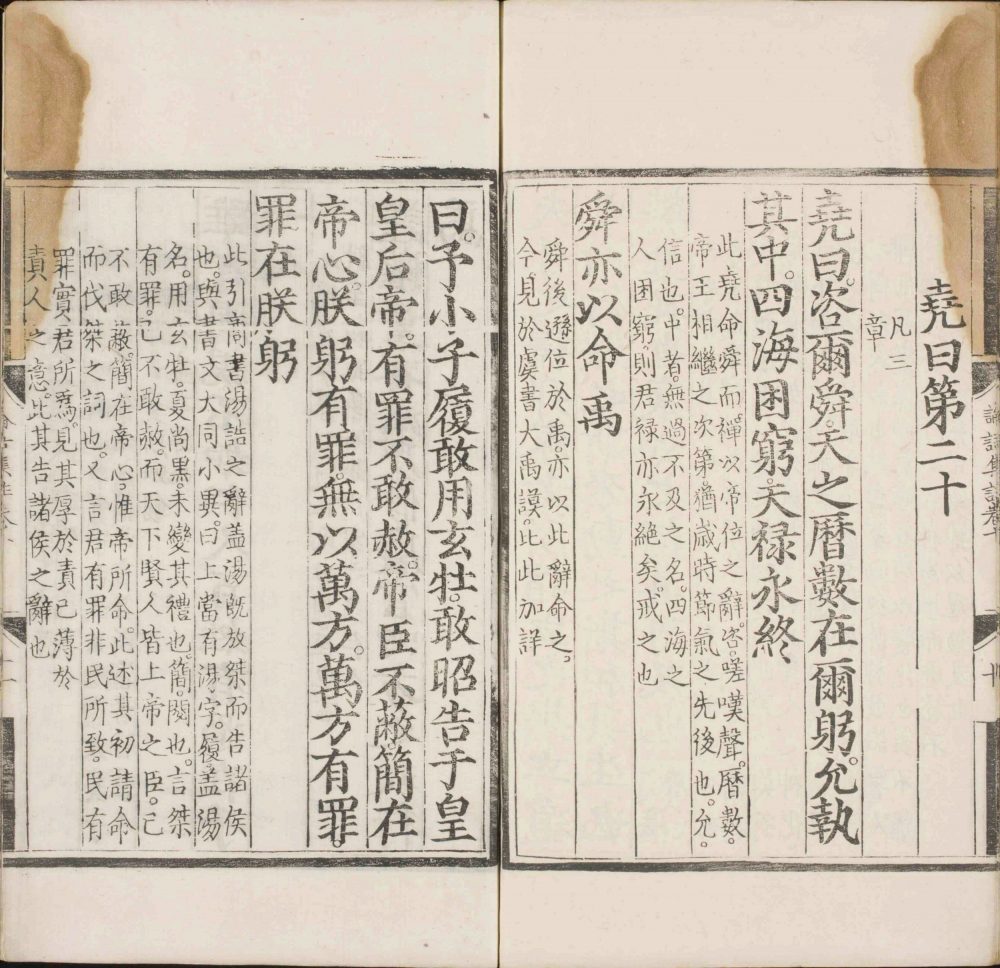 堯曰第二十
凡三
章
堯曰。咨爾舜。天之曆數在爾躬。允執
其中。四海困窮。天禄永終
此堯命舜而禪以帝位之辭。咨。嗟嘆聲。曆數。
帝王相繼之次第。猶歲時節氣之先後也。允。
信也。中者。無過不及之名。四海之
人困窮則君禄亦永絶矣。戒之也
舜亦以命禹
舜後遜位於禹。亦以此辭命之。
今見於虞書大禹謨。比此加詳
曰。予小子履敢用玄牡。敢昭告于皇
皇后帝。有罪不敢赦。帝臣不蔽。簡在
帝心。朕躬有罪。無以萬方。萬方有罪。
罪在朕躬
此引商書湯誥之辭。盖湯既放桀而告諸侯
也。與書文大同小異。曰上當有湯字。履。盖湯
名。用玄牡。夏尚黑。未變其禮也。簡。閱也。言桀
有罪。己不敢赦。而天下賢人皆上帝之臣。己
不敢蔽。簡在帝心。惟帝所命。此述其初請命
而伐桀之詞也。又言君有罪非民所致。民有
罪實君所爲。見其厚於責己薄於
責人之意。此其告諸侯之辭也